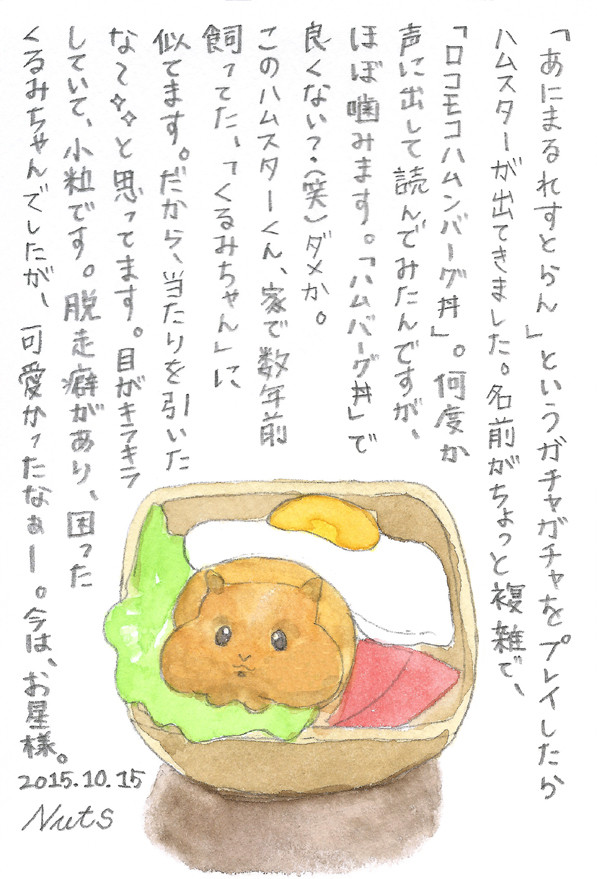 「あにまるれすとらん」というガチャガチャをプレイしたら
ハムスターが出てきました。名前がちょっと複雑で、
「ロコモコハムンバーグ丼」。何度か
声に出して読んでみたんですが、
ほぼ噛みます。「ハムバーグ丼」で
良くない?(笑)ダメか。
このハムスターくん、家で数年前
飼ってた、「くるみちゃん」に
似てます。だから、当たりを引いた
な〜✧✧と思ってます。目がキラキラ
していて、小粒です。脱走癖があり、困った
くるみちゃんでしたが、可愛かったなぁー。今は、お星様。
2015.10.15
Nuts